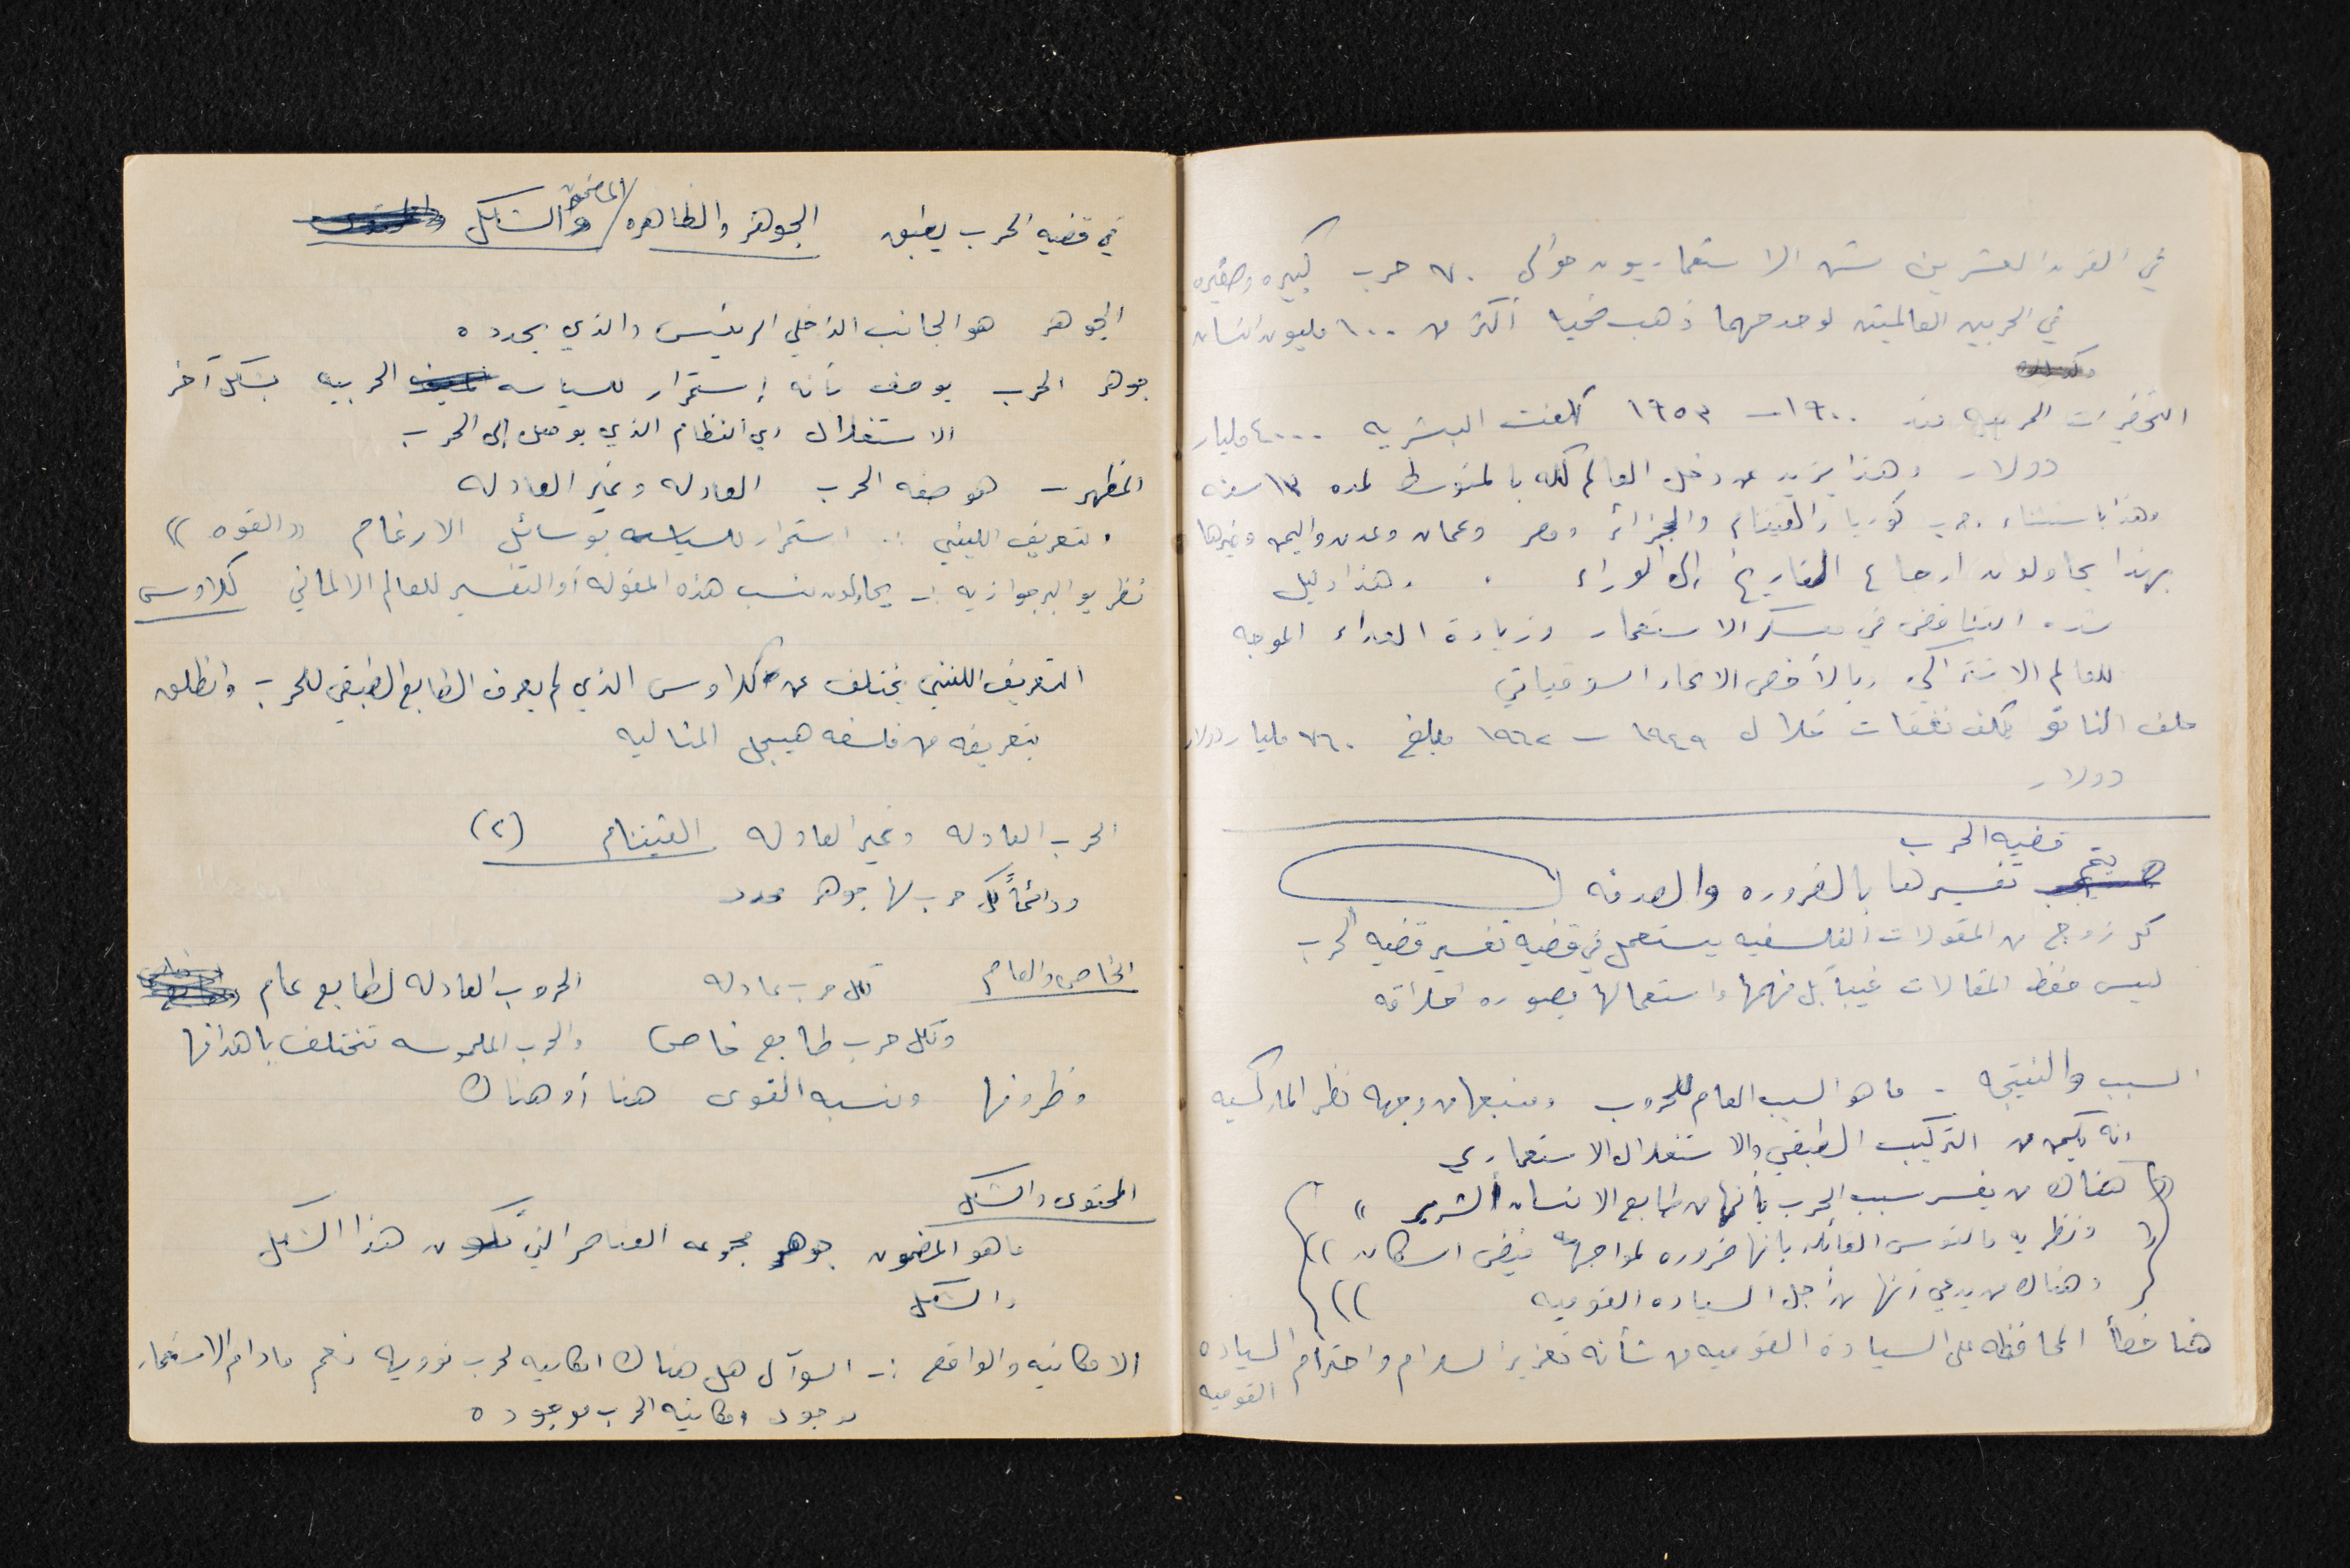 في القرن العشرين شن الاستعماريون حوالي ٧٠ حرب كبيره وصغيره
في الحربين العالميتين لوحدهما ذهب ضحيا أكثر من ٦٠٠ مليون انسان
التحضيرات الحربيه منذ ١٩٠٠ – ١٩٥٣ كلفت البشريه ٤٠٠٠ مليار
دولار وهذا يزيد عن دخل العالم كله بالمتوسط لمده ١٣ سنه
وهذا باستثناء حرب كوريا والفيتنام والجزائر ومصر وعمان وعدن واليمن وغيرها
بهذا يحاولون ارجاع التاريخ إلى الوراء . وهذا دليل
شده التناقض في معسكر الاستعمار وزيادة العداء الموجه
للعالم الاشتراكي وبالأخص الاتحاد السوفياتي
حلف الناتو كلف نفقات خلال ١٩٤٩ – ١٩٦٢ مبلغ ٧٦٠ مليار دولار
دولار
قضيه الحرب
تفسيرها بالضروره والصدفه
كل زوج من المقولات الفلسفيه يستعمل في قضيه تفسير قضيه الحرب
ليس حفظ المقالات غيباً بل فهمها واستعمالها بصوره خلاقه
السبب والنتيجه - ما هو السبب العام للحروب ومنبعها من وجهه نظر الماركسيه
انه يكمن من التركيب الطبقي والاستغلال الاستعماري
هناك من يفسر سبب الحرب بأنها من طابع الانسان الشرير "
ونظريه مالتوس القائله بانها ضروره لمواجهة فيض السكان ))
وهناك من يدعي انها من أجل السياده القوميه ))
هنا خطأ المحافظه على السيادة القوميه من شأنه تعزيز السلام واحترام السياده
القوميه
في قضيه الحرب يطبق الجوهر والظاهره / المضمون والشكل
الجوهر هو الجانب الداخلي الرئيسي والذي يحدده
جوهر الحرب يوصف بأنه إستمرار للسياسه الحربيه بشكل آخر
الاستغلال اي النظام الذي يوصل إلى الحرب
المظهر – هو صفه الحرب العادله وغير العادله
التعريف اللينيني :. استمرار للسياسه بوسائل الارغام ((القوه))
نظريو البرجوازيه :- يحاولون نسب هذه المقوله أو التفسير للعالم الالماني كلاوس
التعريف اللينيني يختلف عن كلاوس الذي لم يعرف الطابع الطبقي للحرب وانطلق
بتعريفه من فلسفه هيجل المثاليه
الحرب العادله وغير العادله الفيتنام (٢)
ودائماً كل حرب لها جوهر محدد
الخاص والعام لكل حرب عادله الحروب العادله لطابع عام
ولكل حرب طابع خاص والحرب الملموسه تختلف باهدافها
وظروفها ونسبه القوى هنا أو هناك
المحتوى والشكل
ما هو المضمون جوهر مجموعه العناصر التي تكون هذا الشكل
والشكل
الامكانيه والواقع :- السوآل هل هناك امكانيه لحرب نوويه نعم مادام الاستعمار
موجود امكانيه الحرب موجوده